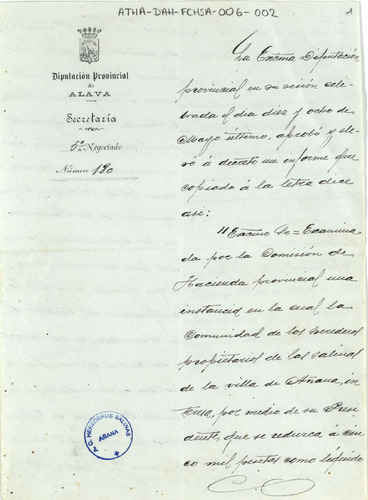 ATHA-DAH-FCHSA-006-002
1
Diputación Provincial
de
ALAVA
Secretaría
6º Negociado
Número 180
La Excma Diputación
provincial en su sesión cele-
brada el día diez y ocho de
Mayo último, aprobó y ele-
vó á decreto un informe que
copiado á la letra dice
así:
"Excmo Sr = Examina
da por la Comisión de
Hacienda provincial una
instancia en la cual la
Comunidad de los herederos
propietarios de las salinas
de la villa de Añana, in
por medio de su Presi
dente, que se reduzca á cin
co mil pesetas como líquido
T. C. HEREDEROS SALINAS
AÑANA